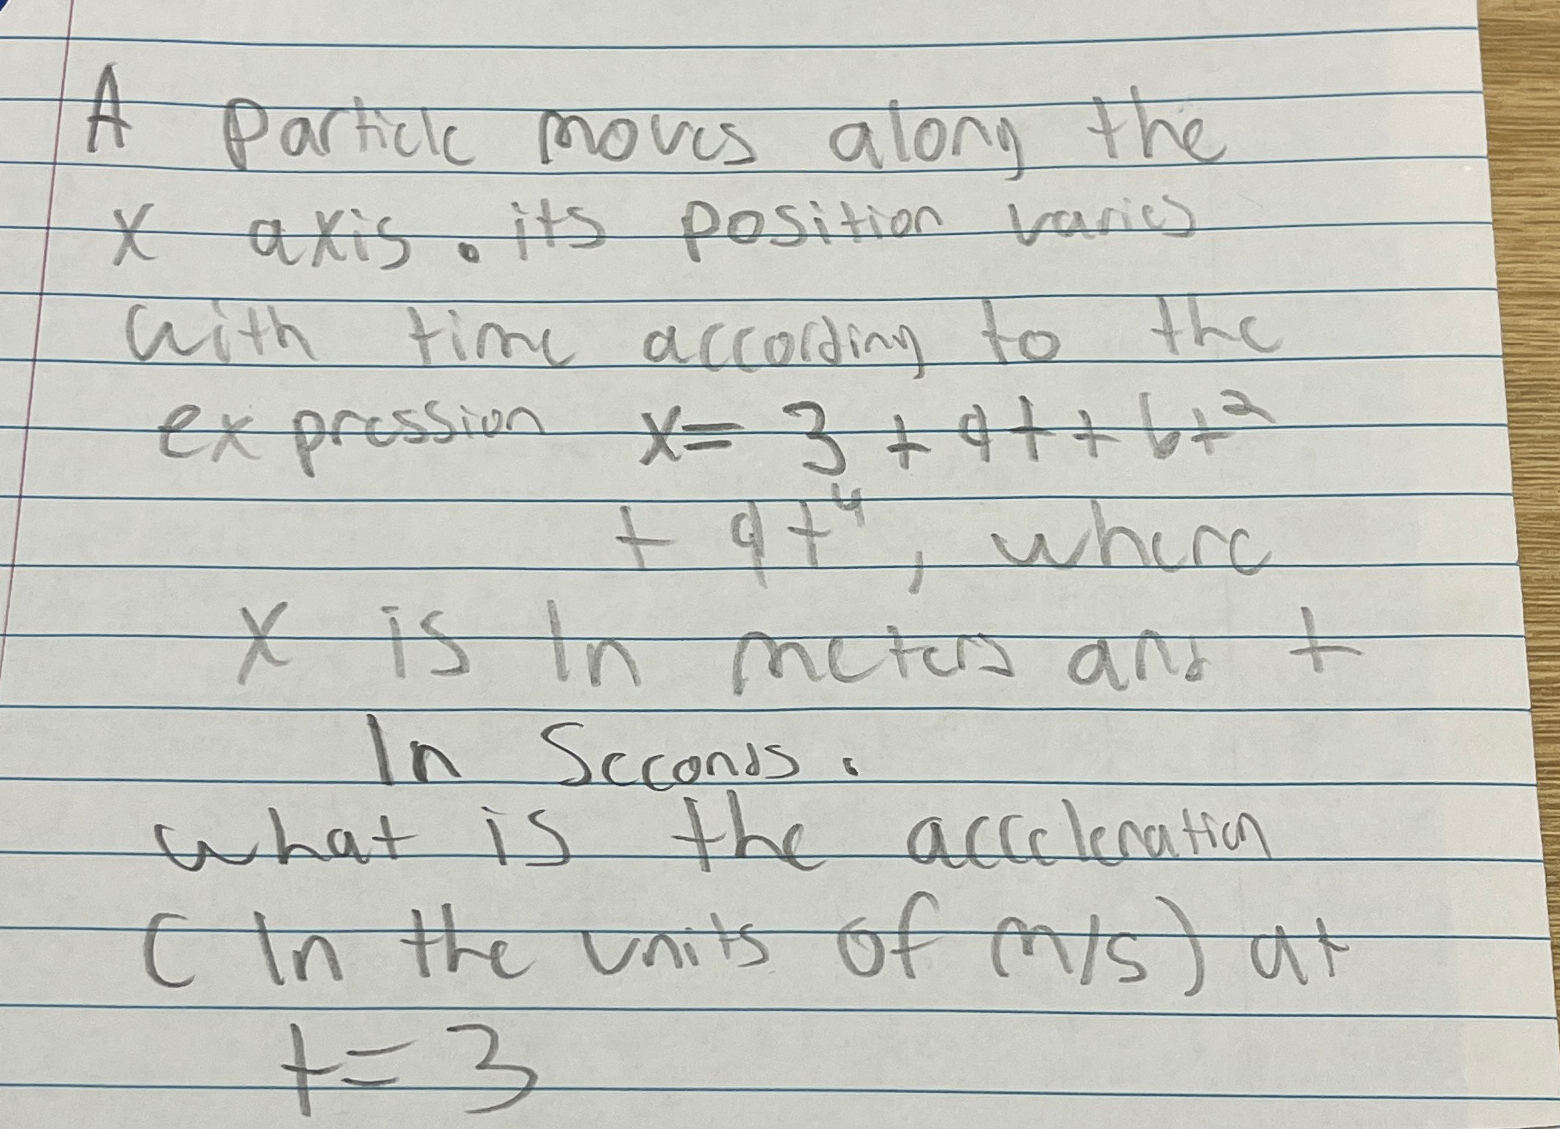 A particle moves along the
x axis. its position varies
with time according to the
expression x= 3 + 9t + 6t²
+ 9t⁴, where
x is In meters and t
In Seconds.
what is the acceleration
( In the units of m/s) at
t= 3